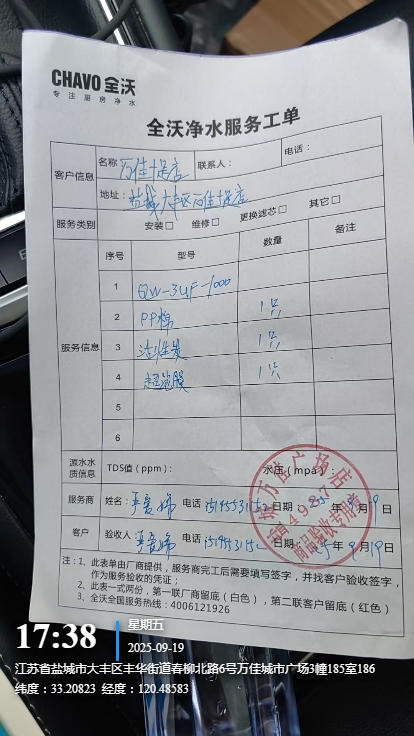 CHAVO 全沃
专注厨房净水
全沃净水服务工单
客户信息 名称 万佳十足店 联系人： 电话：
地址：盐城大丰区万佳十足店
服务类别 安装□ 维修□ 更换滤芯□ 其它□
服务信息 序号 型号 数量 备注
1 QW-3UF-1000
2 PP棉 1只
3 活性炭 1只
4 超滤膜 1只
5
6
源水水质信息 TDS值（ppm）： 水压（mpa）：
服务商 姓名： 电话 日期 年 9月19日
客户 验收人 电话 日期 年 9月19日
注：1、此表单由厂商提供，服务商完工后需要填写签字，并找客户验收签字，
作为服务验收的凭证；
2、此表一式两份，第一联厂商留底（白色），第二联客户留底（红色）
3、全沃全国服务热线：4006121926
17:38 星期五
2025-09-19
江苏省盐城市大丰区丰华街道春柳北路6号万佳城市广场3幢185室186
纬度：33.20823 经度：120.48583